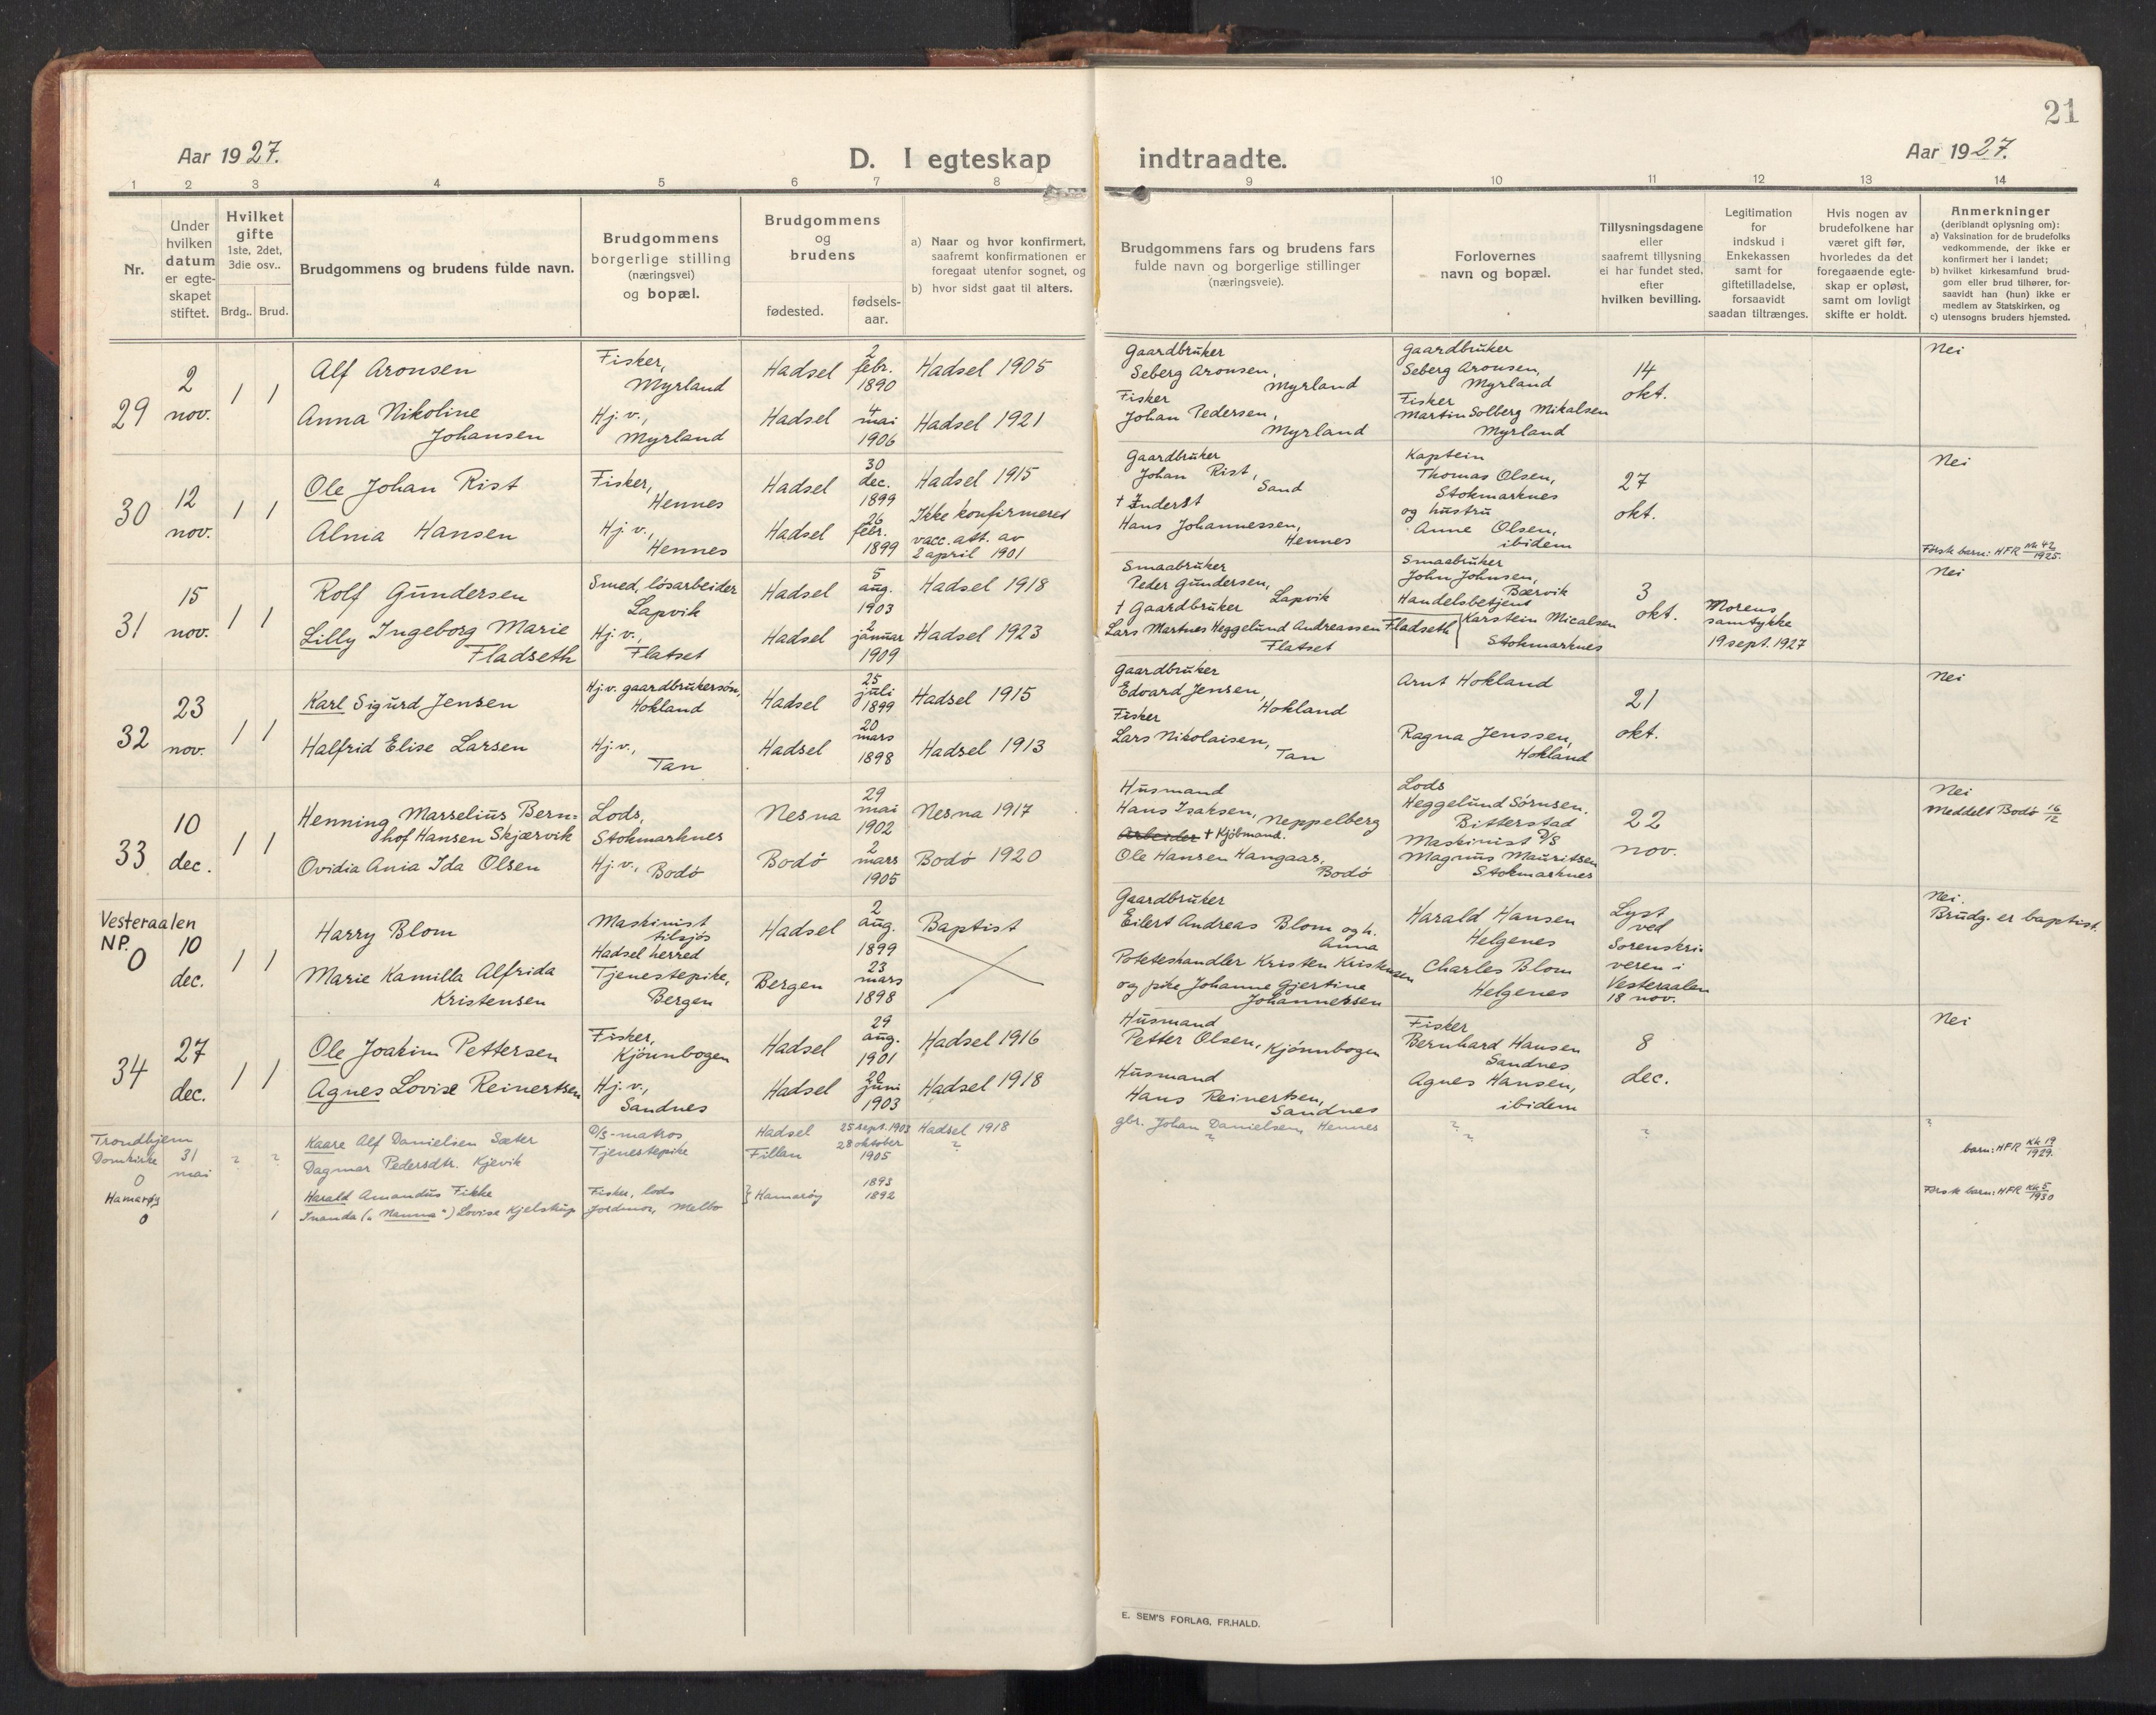 21
Aar 1927.
D. I egteskap indtraadte.
Aar 1927.
1 2 3 4 5 6 7 8 9 10 11 12 13 14
Nr.
Under hvilken datum er egteskapet stiftet.
Hvilket gifte
1ste, 2det, 3die osv..
Brdg.. Brud.
Brudgommens og brudens fulde navn.
Brudgommens borgerlige stilling (næringsvei) og bopæl.
Brudgommens og brudens
fødested.
fødsels-aar.
a) Naar og hvor konfirmert, saafremt konfirmationen er foregaat utenfor sognet, og
b) hvor sidst gaat til alters.
Brudgommens fars og brudens fars fulde navn og borgerlige stillinger (næringsveie).
Forlovernes navn og bopæl.
Tillysningsdagene eller saafremt tillysning ei har fundet sted, efter hvilken bevilling.
Legitimation for indskud i Enkekassen samt for giftetilladelse, forsaavidt saadan tiltrænges.
Hvis nogen av brudefolkene har været gift før, hvorledes da det foregaaende egteskap er opløst, samt om lovligt skifte er holdt.
Anmerkninger
(deriblandt oplysning om):
a) Vaksination for de brudefolks vedkommende, der ikke er konfirmert her i landet;
b) hvilket kirkesamfund brudgom eller brud tilhører, forsaavidt han (hun) ikke er medlem av Statskirken, og
c) utensogns bruders hjemsted.
29
2 nov.
1 1
Alf Aronsen
Fisker, Myrland
Hadsel
2 febr. 1890
Hadsel 1905
Gaardbruker Seberg Aronsen, Myrland
Gaardbruker Seberg Aronsen, Myrland
14 okt.
Nei
Anna Nikoline Johansen
Hj. v., Myrland
Hadsel
4 mai 1906
Hadsel 1921
Fisker Johan Pedersen, Myrland
Fisker Martin Solberg Mikalsen Myrland
30
12 nov.
1 1
Ole Johan Rist
Fisker, Hennes
Hadsel
30 dec. 1899
Hadsel 1915
Gaardbruker Johan Rist, Sand
Kaptein Thomas Olsen, Stokmarknes
27 okt.
Nei
Alma Hansen
Hj. v., Hennes
Hadsel
26 febr. 1899
Ikke konfirmeret vacc. att. av 2 april 1901
† Inderst Hans Johannessen, Hennes
og hustru Anne Olsen, ibidem
Første barn: HFR Mk 42 1925.
31
15 nov.
1 1
Rolf Gundersen
Smed, løsarbeider Lapvik
Hadsel
5 aug. 1903
Hadsel 1918
Smaabruker Peder Gundersen, Lapvik
Smaabruker John Johnsen, Bærvik
3 okt.
Morens samtykke 19 sept. 1927
Nei
Lilly Ingeborg Marie Fladseth
Hj. v., Flatset
Hadsel
2 januar 1909
Hadsel 1923
† Gaardbruker Lars Martnes Heggelund Andreassen Fladseth Flatset
Handelsbetjent Karstein Micalsen Stokmarknes
32
23 nov.
1 1
Karl Sigurd Jensen
Hj. v. gaardbrukersøn, Hokland
Hadsel
25 juli 1899
Hadsel 1915
Gaardbruker Edvard Jensen, Hokland
Arnt Hokland
21 okt.
Nei
Halfrid Elise Larsen
Hj. v., Tan
Hadsel
20 mars 1898
Hadsel 1913
Fisker Lars Nikolaisen, Tan
Ragna Jenssen, Hokland
33
10 dec.
1 1
Henning Marselius Bernhof Hansen Skjærvik
Lods, Stokmarknes
Nesna
29 mai 1902
Nesna 1917
Husmand Hans Isaksen, Neppelberg
Lods Heggelund Sørnsen. Bitterstad
22 nov.
Nei
Meddelt Bodø 16/12
Ovidia Ania Ida Olsen
Hj. v., Bodø
Bodø
2 mars 1905
Bodø 1920
Arbeider † Kjøbmand. Ole Hansen Hangaas, Bodø
Maskinist D/S Magnus Mauritsen Stokmarknes
Vesteraalen NP. 0
10 dec.
1 1
Harry Blom
Maskinist tilsjøs Hadsel herred
Hadsel
2 aug. 1899
Baptist
Gaardbruker Eilert Andreas Blom og h. Anna
Harald Hansen Helgenes
Lyst ved Sorenskriveren i Vesteraalen 18 nov.
Nei.
Brudg. er baptist.
Marie Kamilla Alfrida Kristensen
Tjenestepike, Bergen
Bergen
23 mars 1898
Poteteshandler Kristen Kristensen og pike Johanne Gjertine Johannessen
Charles Blom Helgenes
34
27 dec.
1 1
Ole Joakim Pettersen
Fisker, Kjønnbogen
Hadsel
29 aug. 1901
Hadsel 1916
Husmand Petter Olsen, Kjønnbogen
Fisker Bernhard Hansen Sandnes
8 dec.
Nei
Agnes Lovise Reinertsen
Hj. v., Sandnes
Hadsel
20 juni 1903
Hadsel 1918
Husmand Hans Reinertsen, Sandnes
Agnes Hansen, ibidem
Trondhjem Domkirke 0
31 mai
? ?
Kaare Alf Danielsen Sæter
D/S-matros
Hadsel
25 sept. 1903
Hadsel 1918
gbr. Johan Danielsen, Hennes
?
?
?
Dagmar Pedersdtr. Kjevik
Tjenestepike
Fillan
28 oktober 1905
?
?
?
barn: HFR Kk 19 1929.
Hamarøy 0
1
Harald Amandus Fikke
Fisker, lods
} Hamarøy
1893
Inanda („Nanna“) Lovise Kjelstrup
Jordmor, Melbo
1892
Første barn: HFR Kk 5 1930
E. SEM'S FORLAG, FR.HALD.